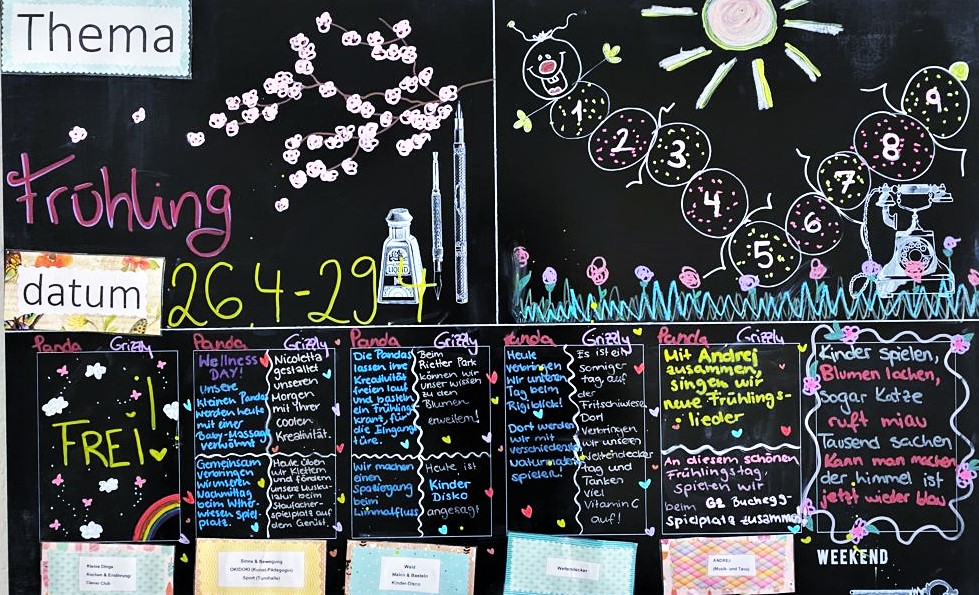 Thema
Frühling
datum
26.4-29.4
1
2
3
4
5
6
7
8
9
LIQUID
Panda Grizzly
FREI!
Panda Grizzly
Wellness
DAY!
Unsere
kleinen Pandas
werden heute
mit einer
Baby-Massage
verwöhnt
Nicoletta
gestaltet
unseren
Morgen
mit ihrer
coolen
Kreativität.
Gemeinsam
verbringen
wir unseren
Nachmittag
beim
wiesen Spiel-
platz.
Heute üben
wir klettern
und fördern
unsere Musku-
latur beim
Staufacher-
spielplatz auf
dem Gerüst.
Panda Grizzly
Die Pandas
lassen ihre
Kreativität
freien lauf
und basteln
ein Frühlings
kranz, für
die Eingangs
türe.
Beim
Rieter Park
können wir
unser wissen
zu den
Blumen
erweitern!
Wir machen
einen
Spaziergang
beim
Limmatfluss
Heute ist
Kinder
Disko
angesagt
Panda Grizzly
Heute
verbringen
Wir unseren
Tag beim
Rigiblick!
Dort werden
wir mit
verschiedenen
naturmaterial
spielen.
Es ist ein
sonniger
tag, auf
der
Fritschiwiese
Dort
verbringen
wir unseren
Weltendecker
tag und
Tanken
viel
Vitamin C
auf!
Panda Grizzly
Mit Andrej
zusammen,
singen wir
neue Frühlings-
lieder
An diesem schönen
Frühlingstag,
spielen wir
beim GZ Buchegg-
spielplatz zusammen
Kinder spielen,
Blumen lachen,
sogar Katze
ruft miau
Tausend sachen
kann man machen
der himmel ist
jetzt wieder blau
WEEKEND
Kleine Dinge
Kochen & Ernährung
Clever Club
Sinne & Bewegung
OKIDOKI (Kunst-Pädagogin)
Sport (Turnhalle)
Wald
Malen & Basteln
Kinder-Disco
Weltendecker
ANDREJ
(Musik- und Tanz)